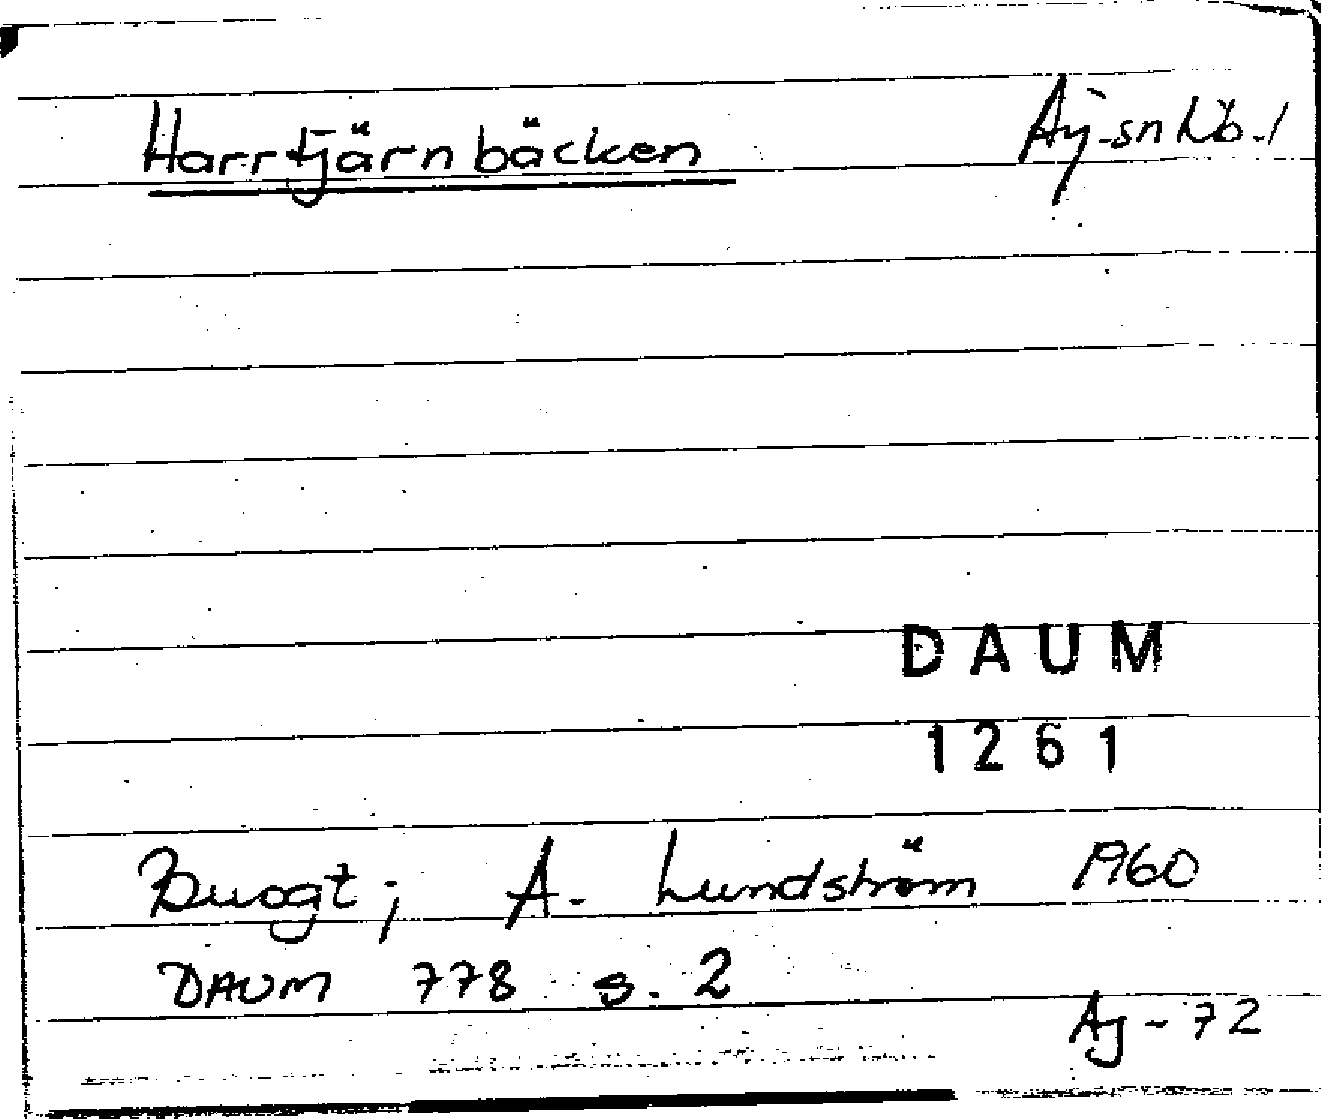 Harrtjärnbäcken Aj-sn Nb-l
DAUM
1261
Buogt; A. Lundström 1960
DAUM 778 s. 2
Aj-72